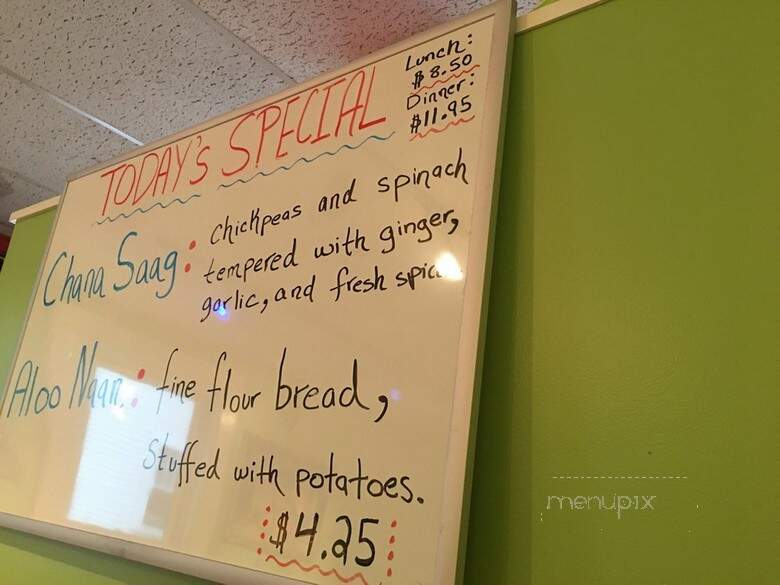 TODAY'S SPECIAL
Lunch:
$8.50
Dinner:
$11.95
Chana Saag: chickpeas and spinach
tempered with ginger,
garlic, and fresh
Aloo Naan: fine flour bread,
Stuffed with potatoes.
$4.25
menupix